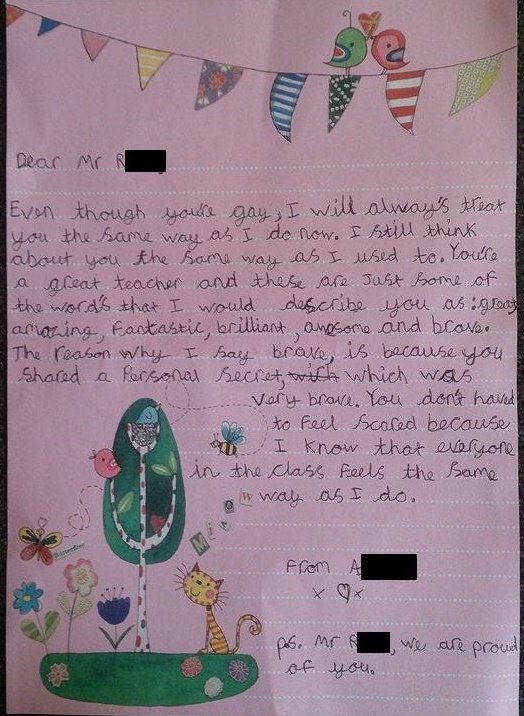 Dear Mr R
Even though you're gay, I will always's treat
you the same way as I do now. I still think
about you the same way as I used to. You're
a great teacher and these are just some of
the word's that I would describe you as: great,
amazing, fantastic, brilliant, awesome and brave.
The reason why I say brave, is because you
shared a Personal secret, with which was
very brave. You don't haved
to feel scared because
I know that everyone
in the class feels the same
way as I do.
MIAOW
Butterflies
From A
x ♡ x
ps. Mr R, we are proud
of you.